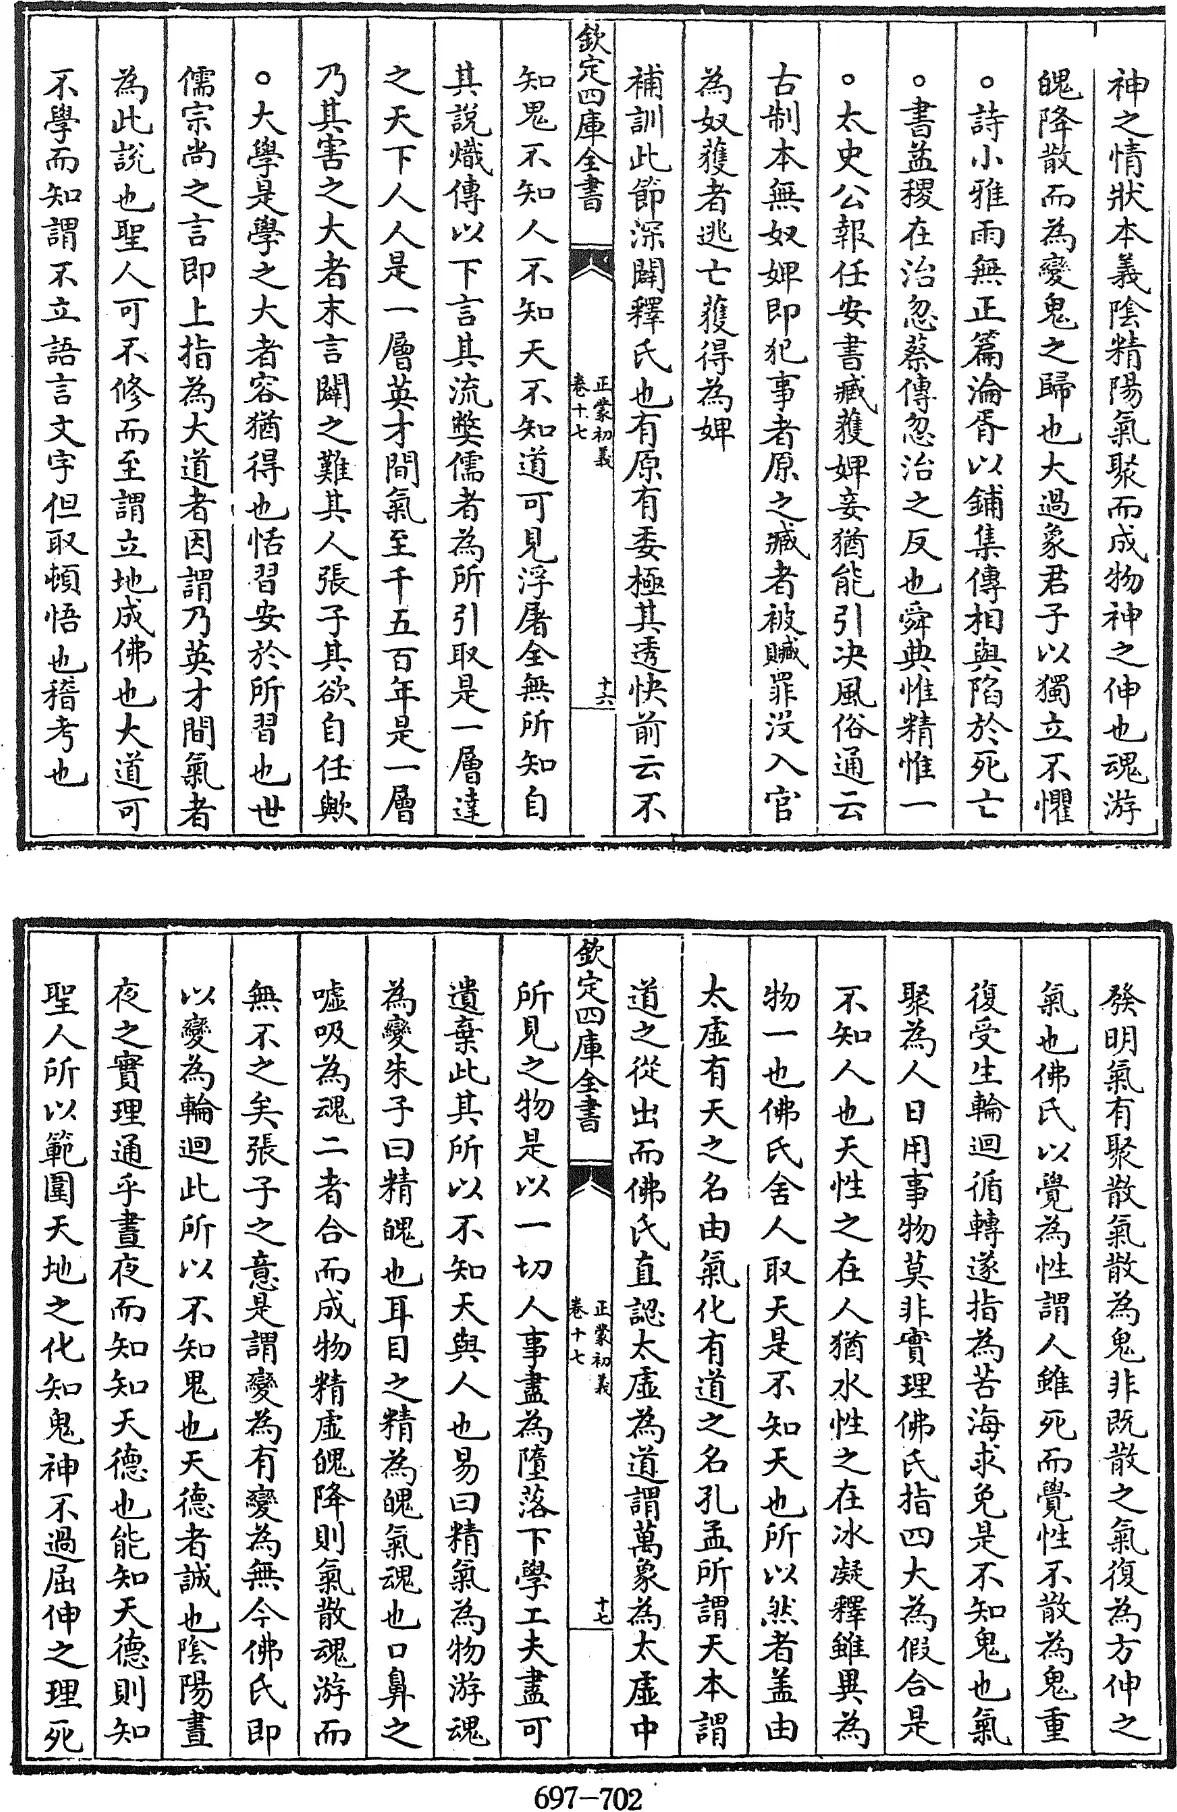 神之情狀本義陰精陽氣聚而成物神之伸也魂游
魄降散而為變鬼之歸也大過象君子以獨立不懼
○詩小雅雨無正篇淪胥以鋪集傳相與陷於死亡
○書益稷在治忽蔡傳忽治之反也舜典惟精惟一
○太史公報任安書臧獲婢妾猶能引决風俗通云
古制本無奴婢即犯事者原之臧者被贓罪沒入官
為奴獲者逃亡獲得為婢
補訓此節深闢釋氏也有原有委極其透快前云不
欽定四庫全書
正蒙初義
卷十七
十六
知鬼不知人不知天不知道可見浮屠全無所知自
其說熾傳以下言其流弊儒者為所引取是一層達
之天下人人是一層英才間氣至千五百年是一層
乃其害之大者末言闢之難其人張子其欲自任歟
○大學是學之大者容猶得也恬習安於所習也世
儒宗尚之言即上指為大道者因謂乃英才間氣者
為此說也聖人可不修而至謂立地成佛也大道可
不學而知謂不立語言文字但取頓悟也稽考也
發明氣有聚散氣散為鬼非既散之氣復為方伸之
氣也佛氏以覺為性謂人雖死而覺性不散為鬼重
復受生輪迴循轉遂指為苦海求免是不知鬼也氣
聚為人日用事物莫非實理佛氏指四大為假合是
不知人也天性之在人猶水性之在冰凝釋雖異為
物一也佛氏舍人取天是不知天也所以然者盖由
太虛有天之名由氣化有道之名孔孟所謂天本謂
道之從出而佛氏直認太虛為道謂萬象為太虛中
欽定四庫全書
正蒙初義
卷十七
十七
所見之物是以一切人事盡為墮落下學工夫盡可
遺棄此其所以不知天與人也易曰精氣為物游魂
為變朱子曰精魄也耳目之精為魄氣魂也口鼻之
噓吸為魂二者合而成物精虛魄降則氣散魂游而
無不之矣張子之意是謂變為有變為無今佛氏即
以變為輪迴此所以不知鬼也天德者誠也陰陽晝
夜之實理通乎晝夜而知知天德也能知天德則知
聖人所以範圍天地之化知鬼神不過屈伸之理死
697-702